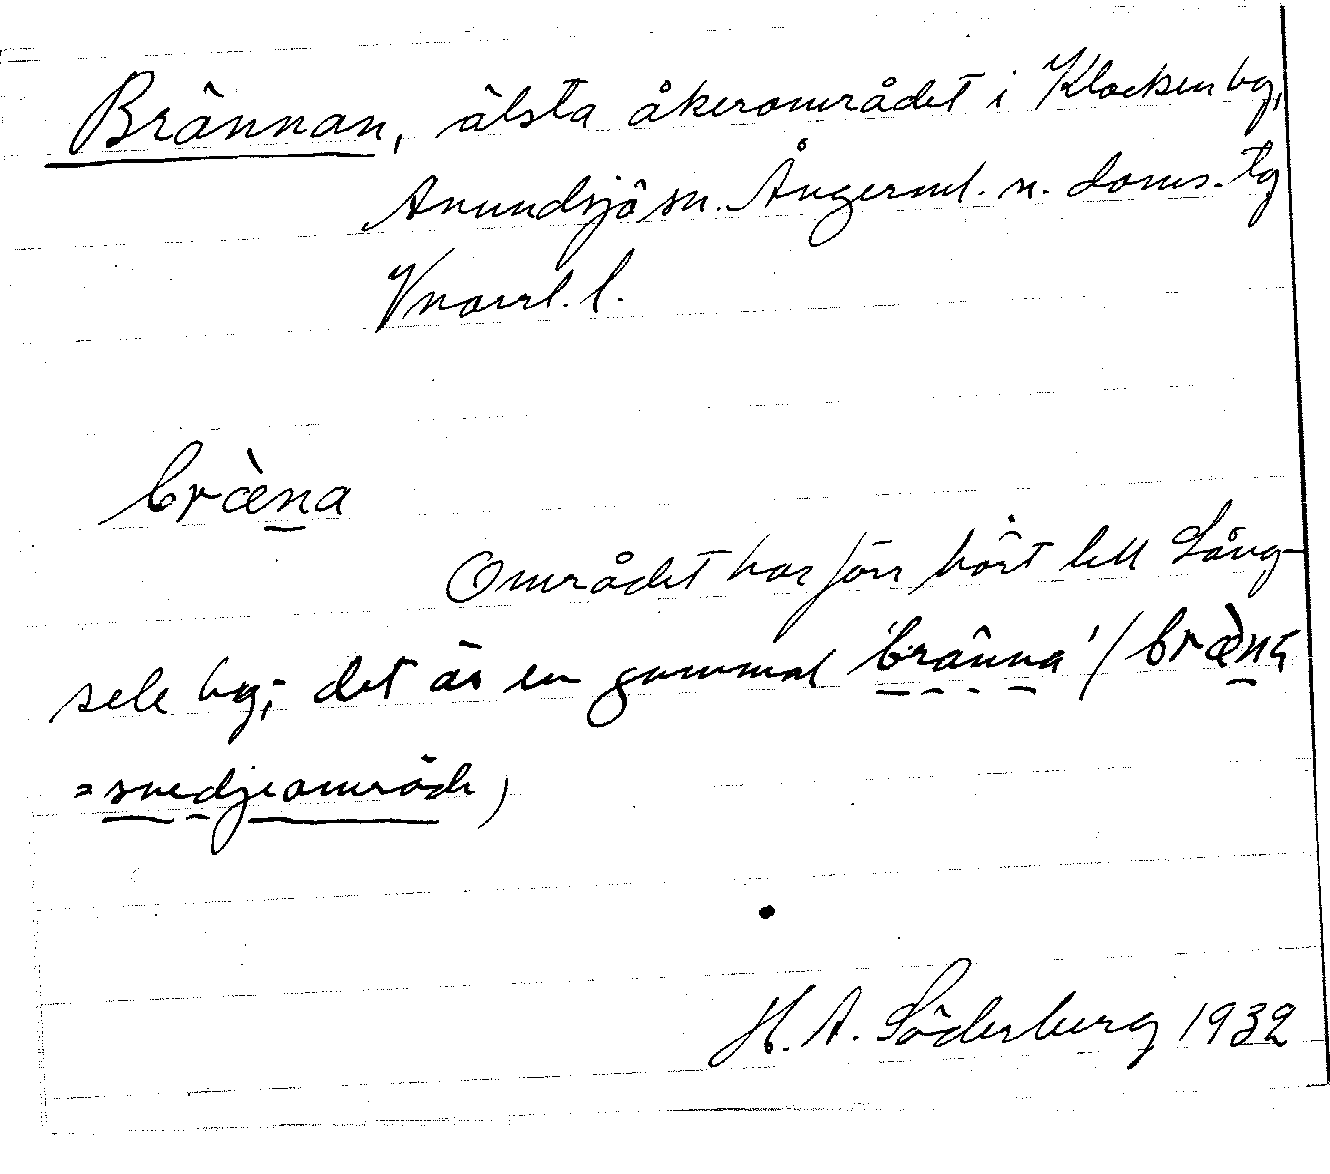 Brännan, älsta åkerområdet i Klocken by,
Anundsjö sn. Ångerml. n. doms. tg
Vnorrl. l.
bræ̀na
Området har förr hört till Lång-
sele by; det är en gammal 'bränna' (bræ̀na
= svedjeområde)
H. A. Söderberg 1932